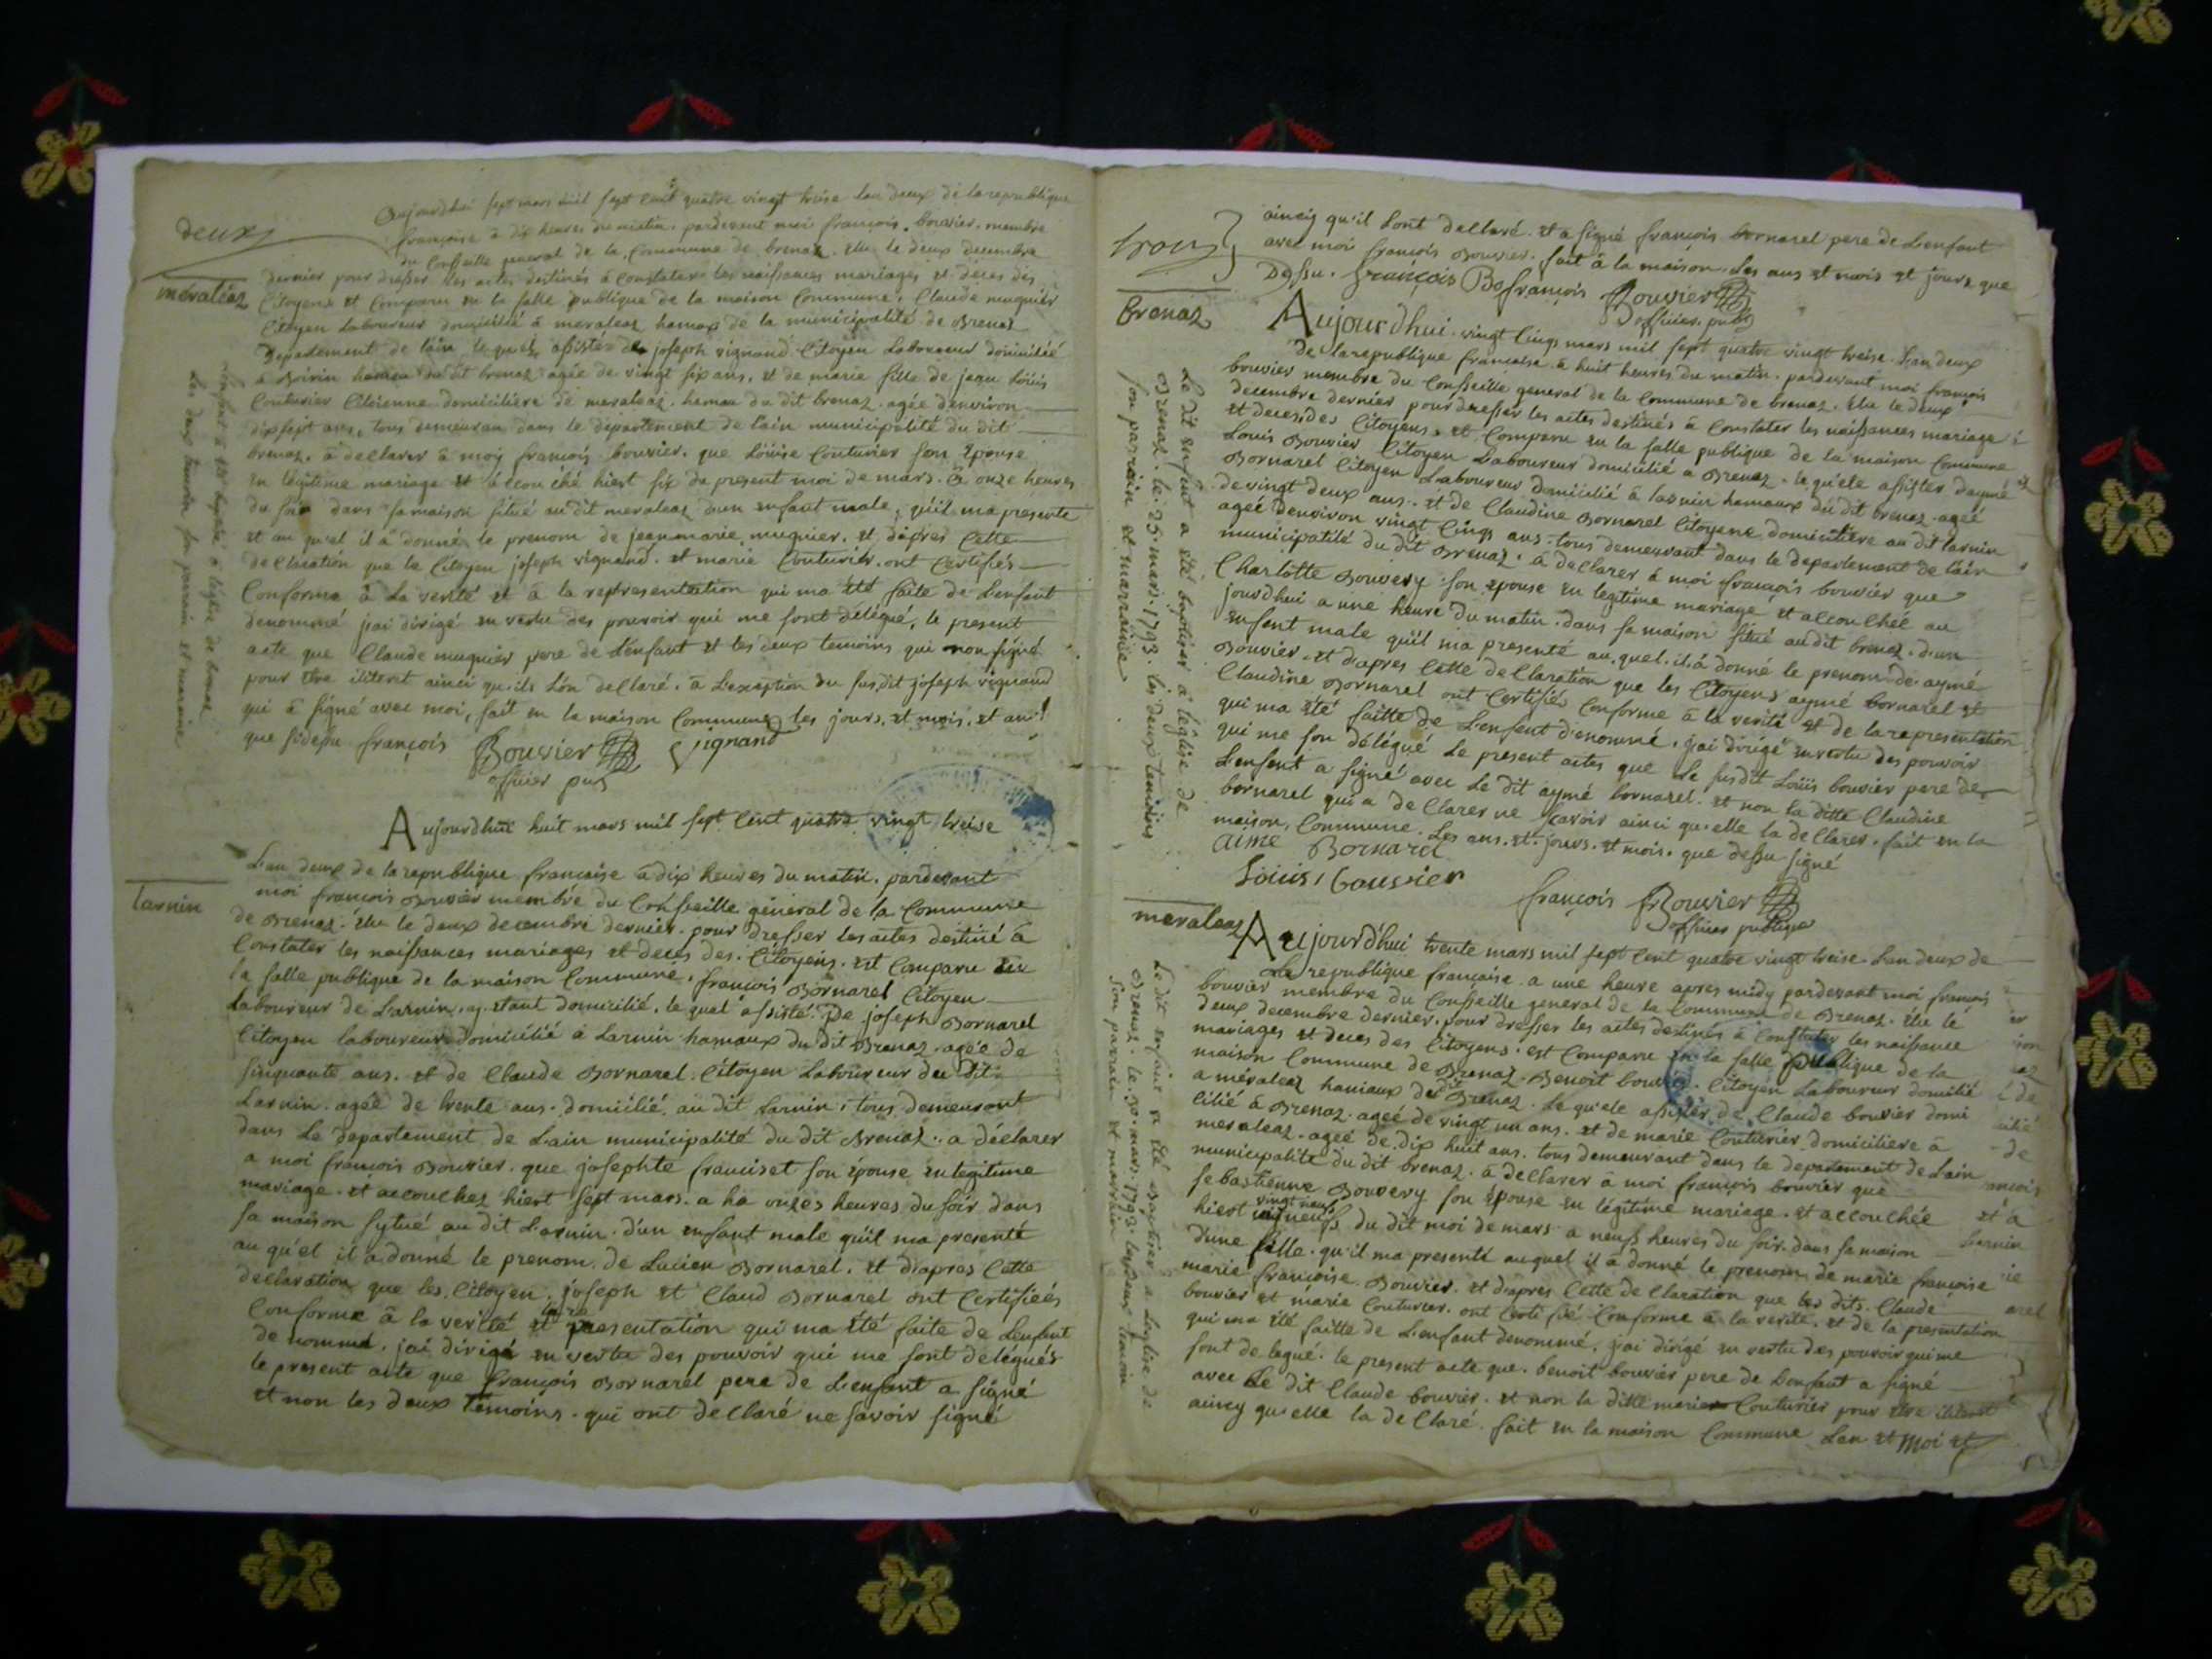 deux
Aujourdhui sept mars mil sept cent quatre vingt treise lan deux de la republique
françoise à dix heures du matin, pardevent moi françois bouvier. membre
du Conseille general de la Commune de brenaz. élu le deux decembre
dernier pour dresser les actes destinés à constater les naissances mariages et deces des
méraléaz
Citoyens et Comparu en la salle publique de la maison Commune. Claude mugnier
Citoyen Laboureur domicilié à meraleaz hamax de la municipalité de Brenaz
Département de lain lequel assisté de joseph vignand Citoyen Laboureur domicilié
à hamau du dit brenaz agée de vingt six ans, et de marie fille de jean Loüis
Couturier Citoienne domiciliere de meraleaz. hamau du dit brenaz. agée denviron
dixsept ans, tous demeuran dans le département de l'ain municipalité du dit
brenaz. à declarer à moy françois bouvier. que Loüise Couturier son Epouse
en légitime mariage et accouché hiest six du present moi de mars. à onze heures
du soir dans sa maison situé audit meraleaz dun enfant male, quil ma presenté
et au quel il à donné le prenom de jeanmarie mugnier. et dapres Cette
declaration que le Citoyen joseph vignand. et marie Couturier. ont Certifiés
Conforme à La verité et à la representation qui ma été faite de Lenfant
denommé jai dirigé en vertu des pouvoir qui me sont délégué, le present
acte que Claude mugnier pere de Lenfant et les deux temoins qui non signé
pour etre iliteret ainci qu'ils Lon declaré. à Lexception du susdit joseph vignand
qui à signé avec moi, fait en la maison Commune les jours, et mois, et an
que sidessu françois Bouvier vignand
officier pub
Lenfant à été baptisé à l'église de brenaz
Les deux temoin son parrain et maraine
Aujourdhui huit mars mil sept cent quatre vingt treise
Lan deux de la republique francaise à dix heures du matin. pardevant
larnin
moi françois Bouvier membre du Conseille général de la Commune
de Brenaz. élu le deux decembre dernier. pour dresser les actes destiné à
Constater les naissances mariages et deces des. Citoyens. est Comparu
la salle publique de la maison Commune. françois Bornarel Citoyen
Laboureur de Larnin. ay. etant domicilié. le quel assisté. De joseph Bornarel
Citoyen laboureur domicilié à Larnin hamaux du dit Brenaz. agée de
sinquante ans. et de Claude Bornarel. Citoyen Laboureur du dit
Larnin. agée de trente ans. domicilié au dit Larnin, tous demeurant
dans Le departement de Lain municipalité du dit Brenaz. a déclarer
a moi françois Bouvier. que josephte franciset son épouse en legitime
mariage. et accouchez hiest sept mars. a ha onzes heures du soir dans
sa maison sytué au dit Larnin. d'un enfant male quil ma presenté
au qu'el il à donné le prenom de Lucien Bornarel. et dapres Cette
declaration que les Citoyen. joseph et Claud Bornarel ont Certifiéés
Conforme à la verité et la re presentation qui ma été faite de Lenfant
de nommé. jai dirigé en vertu des pouvoir qui me sont delegués
le present acte que françois Bornarel pere de L'enfant a signé
et non les deux temoins. qui ont declaré ne savoir signé
trois
aincy qu'il Lont declaré. et a signé françois bornarel pere de L'enfant
avec moi françois Bouvier. fait à la maison. Les ans et mois et jours que
Dessu. françois Bo françois Bouvier
officier. publ
Brenaz
Aujourdhui. vingt Cinq mars mil sept quatre vingt treise. Lan deux
de la republique francaise. à huit heures du matin. pardevant moi françois
bouvier membre du Conseille general de la Commune de brenaz. élu le deux
decembre dernier pour dresser les actes destinés à Constater les naissances mariage
et deces, des Citoyens. et Comparu en la salle publique de la maison Commune
Louis Bouvier Citoyen Laboureur domicilié a Brenaz. le qu'ele assister daymé
Bornarel Citoyen Laboureur domicilié à larnin hamaux du dit brenaz. ageé
de vingt deux ans. et de Claudine Bornarel Citoyene domiciliere au dit larnin
ageé denviron vingt Cinqs ans. tous demeurant dans le departement de l'ain
municipalité du dit Brenaz. à declarer à moi françois bouvier que
Charlotte Bouvery son épouse en legitime mariage et accouchée au
jourdhui a une heure du matin. dans sa maison situé audit brenaz. d'un
enfant male qu'il ma presenté au quel. il. à donné le prenom de aymé
Bouvier. et d'apres Cette declaration que les Citoyens aymé bornarel et
Claudine Bornarel ont Certifiés Conforme à la verité et de la representation
qui ma été faitte de L'enfant denommé. jai dirigé en vertu des pouvoir
qui me son délégué Le present actes que Le susdit Loüis bouvier pere de
L'enfant a signé avec Le dit aymé bornarel. et non la ditte Claudine
bornarel qui a declarer ne savoir ainci qu'elle la declarer. fait en la
maison, Commune. Les ans. et. jours. et mois. que dessu signé
aimé Bornarel
Loüis, Bouvier
françois Bouvier
officier publique
Le dit enfant a été baptiser à léglise de
Brenaz. le. 25. mars. 1793. les deux temoins
son parrain et marraine
meraleaz
Aujourd'hui trente mars mil sept Cent quatre vingt treise. Lan deux de
La republique françaisse. a une heure apres midy pardevant moi françois
bouvier membre du Conseille general de la Commune de Brenaz. élu le
deux decembre dernier. pour dresser les actes destinés à Constater les naissance
mariages et deces des Citoyens. est Comparu en la salle Publique de la
maison Commune de Brenaz. Benoit bouvier. Citoyen Laboureur domilié
a méraleaz hamaux du dit Brenaz. le qu'ele assister de. Claude bouvier domi
cilié à Brenaz. ageé de vingt un ans. et de marie Couturier domiciliere à
meraleaz. ageé de. dix huit ans. tous demeurant dans le departement de Lain
municipalité du dit brenaz. à declarer à moi françois bouvier que
sebastienne Bouvery son épouse en légitime mariage. et accouchée
hiest vingt neuf du dit moi de mars a neuf heures du soir. dans sa maison
dune fille. qu'il ma presenté auquel il à donné le prenom de marie françoise
marie françoise Bouvier. et dapres Cette declaration que les dits. Claude
bouvier et marie Couturier. ont Certifié Conforme à la verité. et de la presentation
qui ma été faitte de L'enfant denommé. j'ai dirigé en vertu des pouvoir quime
sont delegué. le present acte que. benoit bouvier pere de Lenfant a signé
avec Le dit Claude bouvier. et non la ditte marie Couturier pour etre iliteret
aincy qu'elle la declaré. fait en la maison Commune Lan et moi et
Le dit enfant a été Baptiser a Leglise de
Brenaz. le. 30. mars. 1793. les deux temoin
son parrain et marrain